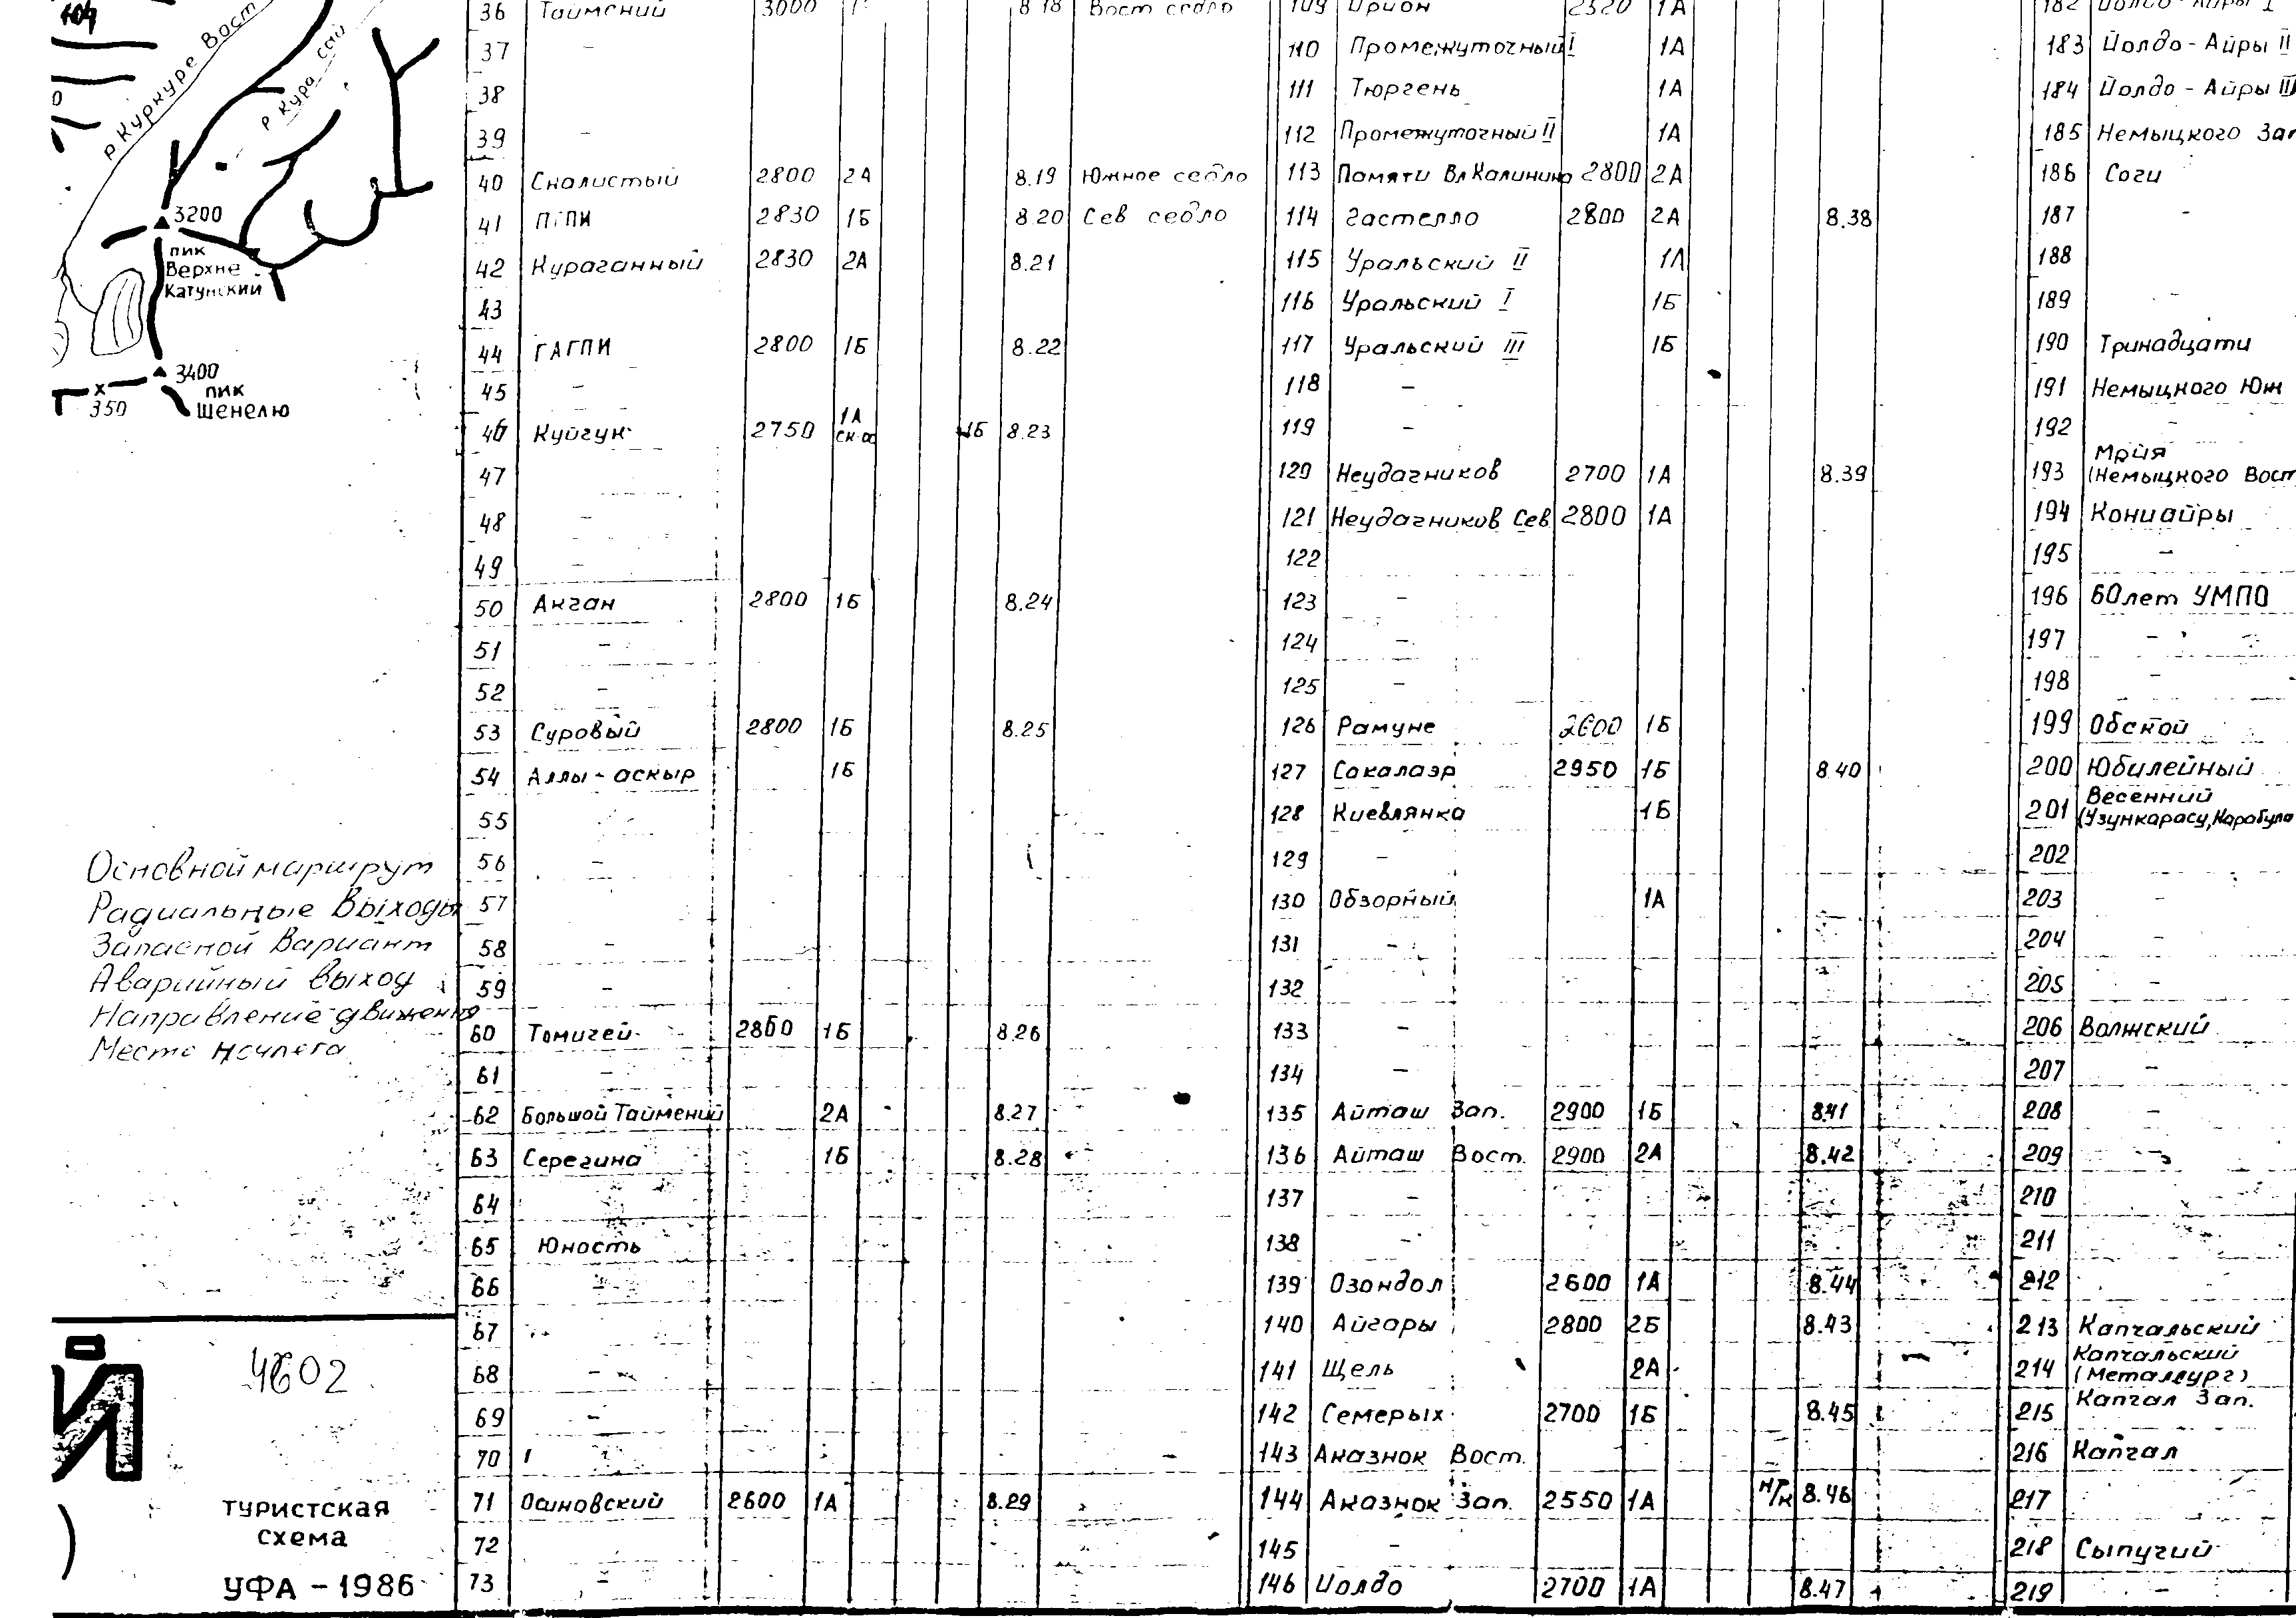 104
р. Куркуре Вост
р Кура сай
3200
пик
Верхне
Катунский
3400
пик
Шенелю
350
Основной маршрут
Радиальные Выходы
Запасной Вариант
Аварийный выход
Направление движения
Место ночлега
Й
4602
)
туристская
схема
УФА – 1986
36 Таймений 3000 8.18 Вост седло
37 –
38
39 –
40 Скалистый 2800 2А 8.19 Южное седло
41 ПГПИ 2830 1Б 8.20 Сев седло
42 Кураганный 2830 2А 8.21
43
44 ГАГПИ 2800 1Б 8.22
45 –
46 Куйгук 2750 1А ск-ос 1Б 8.23
47
48 –
49 –
50 Акчан 2800 1Б 8.24
51 –
52 –
53 Суровый 2800 1Б 8.25
54 Аллы-аскыр 1Б
55
56 –
57
58 –
59 –
60 Томичей 2850 1Б 8.26
61 –
62 Большой Таймений 2А 8.27
63 Серегина 1Б 8.28
64
65 Юность
66
67
68 –
69 –
70
71 Осиновский 2600 1А 8.29
72
73 –
109 Орион 2320 1А
110 Промежуточный I 1А
111 Тюргень 1А
112 Промежуточный II 1А
113 Памяти Вл Калинина 2800 2А
114 Гастелло 2800 2А 8.38
115 Уральский II 1А
116 Уральский I 1Б
117 Уральский III 1Б
118 –
119 –
120 Неудачников 2700 1А 8.39
121 Неудачников Сев 2800 1А
122
123 –
124 –
125 –
126 Рамуне 2600 1Б
127 Сакалаэр 2950 1Б 8.40
128 Киевлянка 1Б
129 –
130 Обзорный 1А
131 –
132
133 –
134 –
135 Айташ Зап. 2900 1Б 8.41
136 Айташ Вост. 2900 2А 8.42
137 –
138 –
139 Озондол 2600 1А 8.44
140 Айгары 2800 2Б 8.43
141 Щель 2А
142 Семерых 2700 1Б 8.45
143 Аказнок Вост.
144 Аказнок Зап. 2550 1А н/к 8.46
145 –
146 Иолдо 2700 1А 8.47
182 Йолдо-Айры I
183 Йолдо-Айры II
184 Йолдо-Айры III
185 Немыцкого Зап
186 Соги
187 –
188
189 –
190 Тринадцати
191 Немыцкого Юж
192 –
193 Мрия (Немыцкого Вост
194 Кониайры
195 –
196 60 лет УМПО
197 –
198 –
199 Обской
200 Юбилейный
201 Весенний (Узункарасу, Карабула
202
203 –
204 –
205 –
206 Волжский
207 –
208 –
209 –
210
211
212
213 Капчальский
214 Капчальский (Металлург)
215 Капчал Зап.
216 Капчал
217
218 Сыпучий
219 –